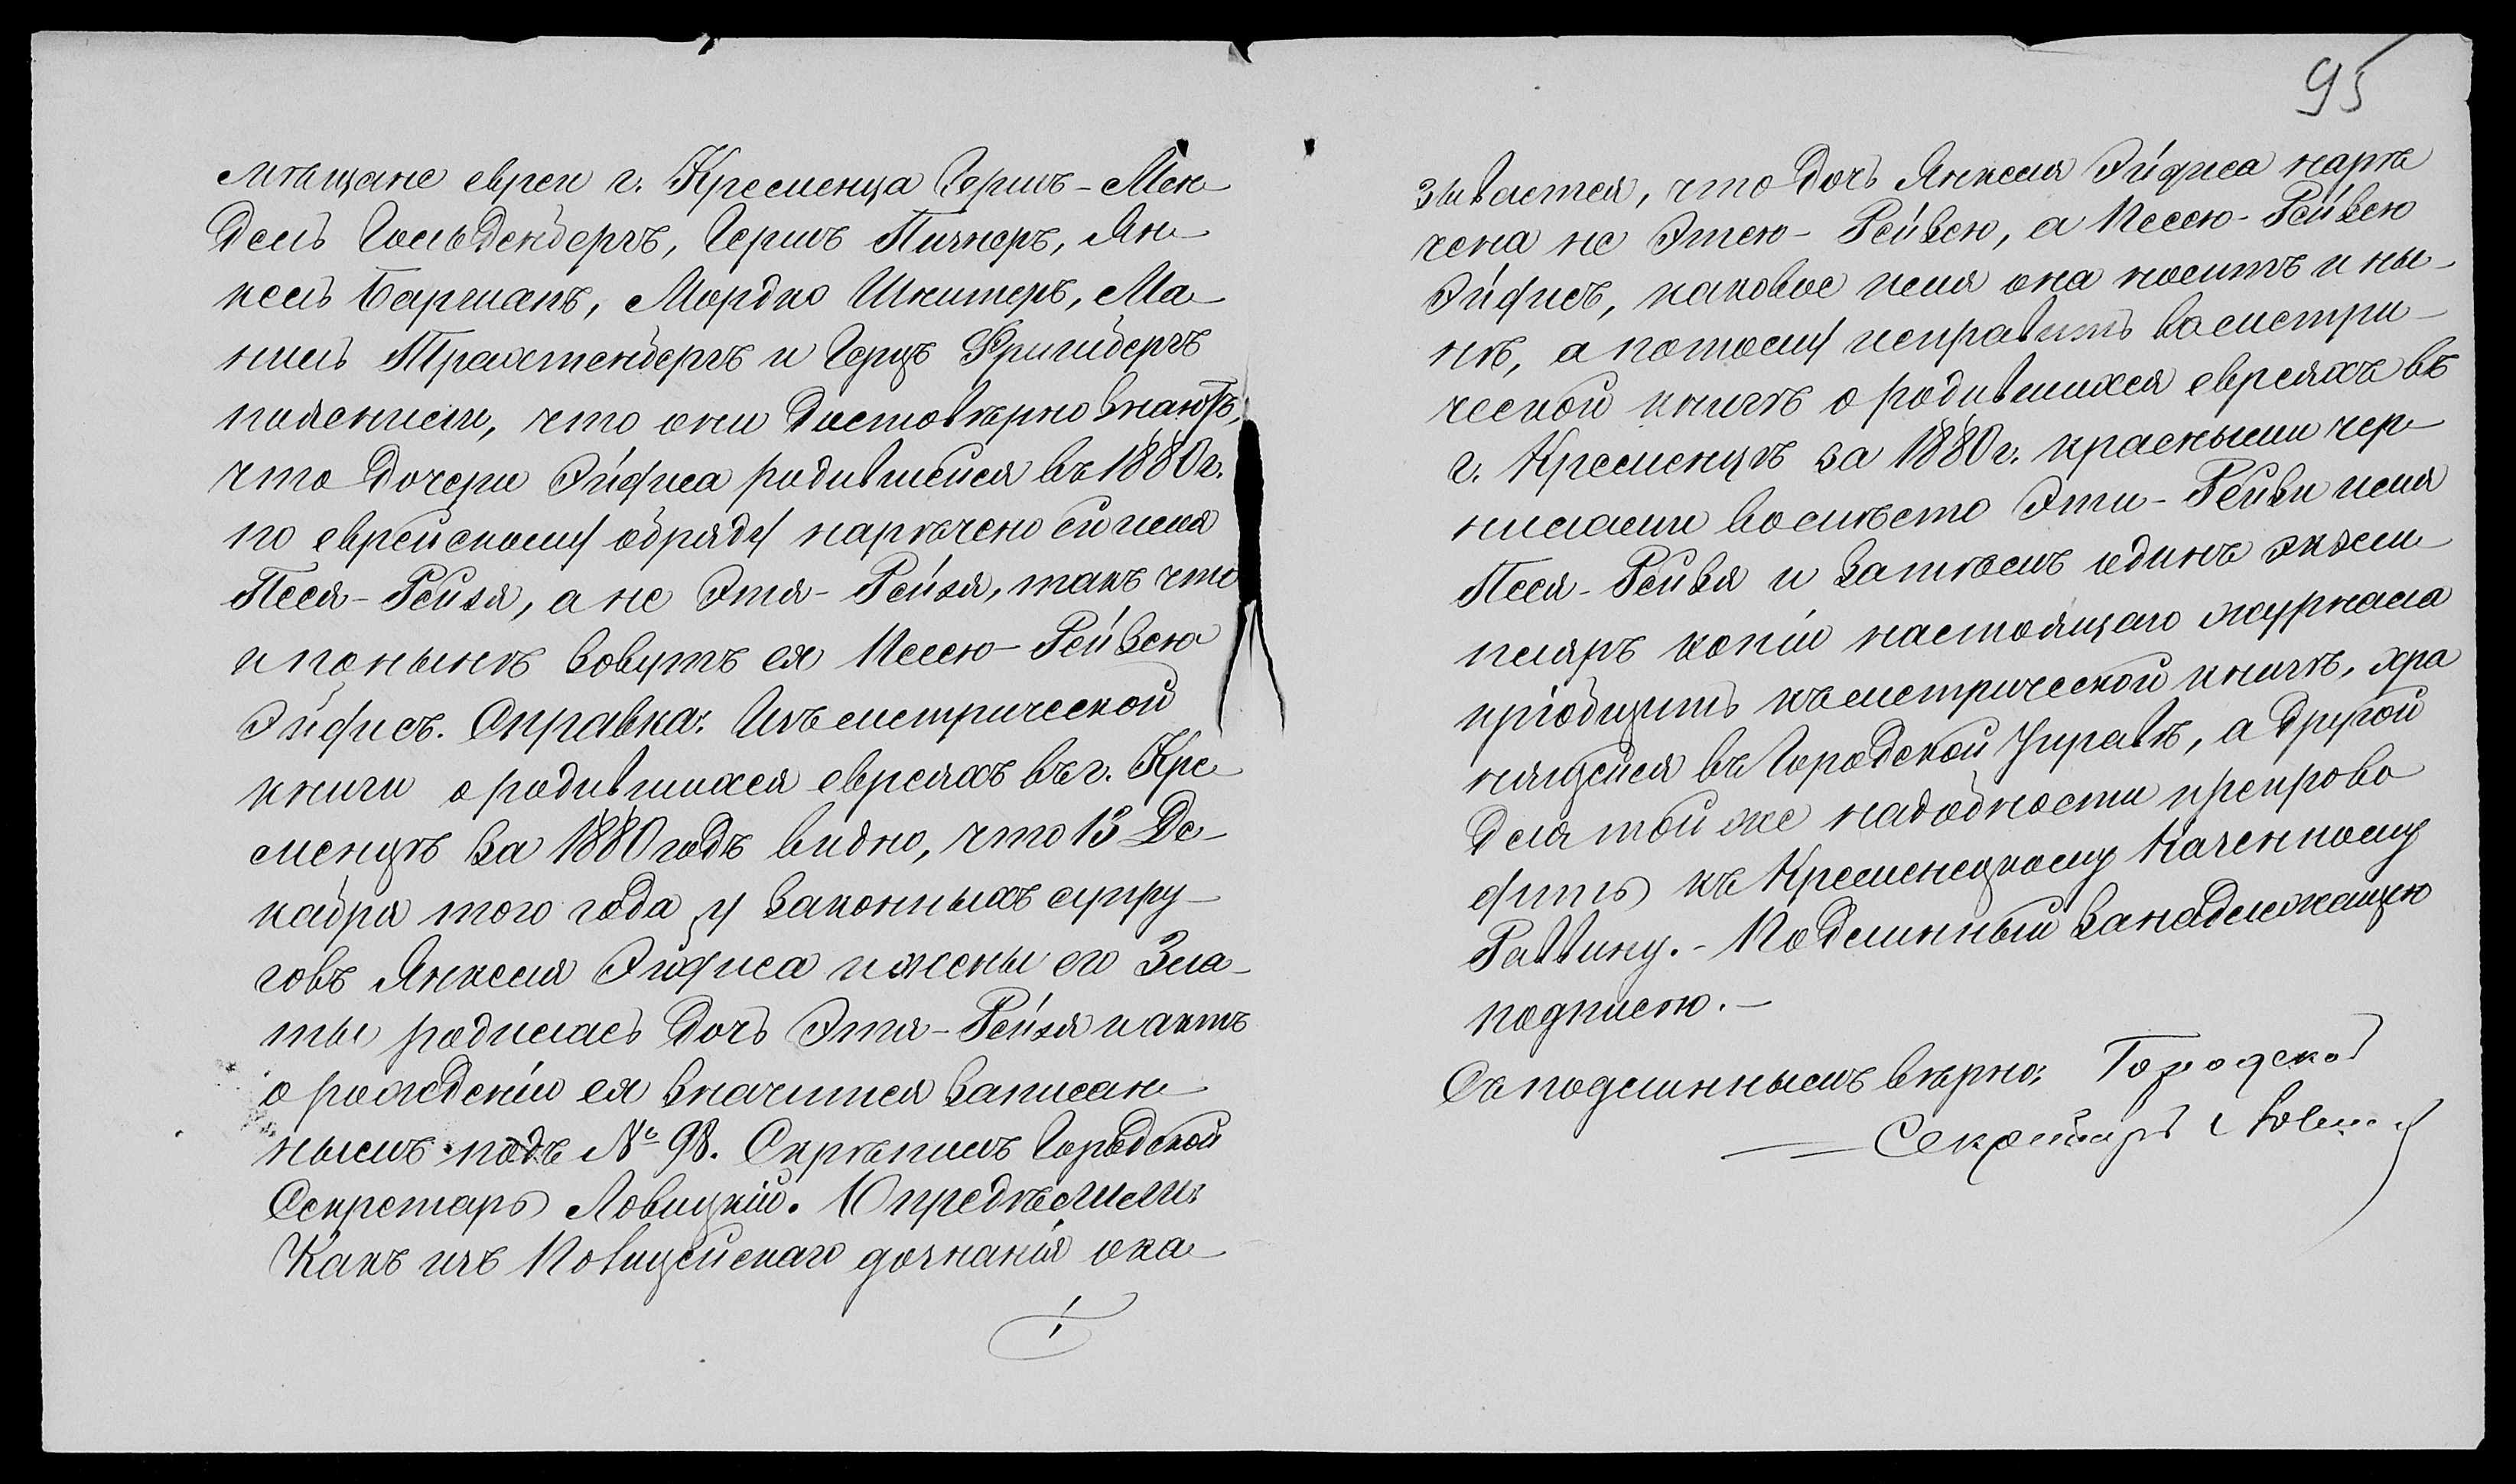 95
мѣщане евреи г. Кременца Гершъ-Мен-
дель Гольденбергъ, Гершъ Пичнеръ, Ян-
кель Баршапъ, Мордко Шнитеръ, Ма-
нись Трахтенбергъ и Герцъ Фришбергъ
пояснили, что они достовѣрно знаютъ,
что дочери Эйфиса родившейся въ 1880 г.
по еврейскому обряду наречено ей имя
Песя-Рейзя, а не Этя-Рейзя, такъ что
и понынѣ зовутъ ея Песею-Рейзею
Эйфисъ. Справка: Изъ метрической
книги о родившихся евреяхъ въ г. Кре-
менцѣ за 1880 годъ видно, что 13 Де-
кабря того года у законныхъ супру-
говъ Янкеля Эйфиса и жены его Зла-
ты родилась дочь Этя-Рейзя и актъ
о рожденіи ея значится записан-
нымъ подъ № 98. Скрѣпилъ Городской
Секретарь Ловицкій. Опредѣлили:
Какъ изъ Полицейскаго дознанія ока-
зывается, что дочь Янкеля Эйфиса нарѣ-
чена не Этею-Рейзею, а Песею-Рейзею
Эйфисъ, каковое имя она носитъ и ны-
нѣ, а потому исправить въ метри-
ческой книгѣ о родившихся евреяхъ въ
г. Кременцѣ за 1880 г. красными чер-
нилами вомѣсто Эти-Рейзи имя
Песя-Рейзя и затѣмъ одинъ экзем-
пляръ копіи настоящаго журнала
пріобщить къ метрической книгѣ, хра-
нящейся въ Городской Управѣ, а другой
для той же надобности препрово-
дить къ Кременецкому Казенному
Раввину.- Подлинный за надлежащею
подписью.-
Съ подлиннымъ вѣрно: Городской
Секретарь